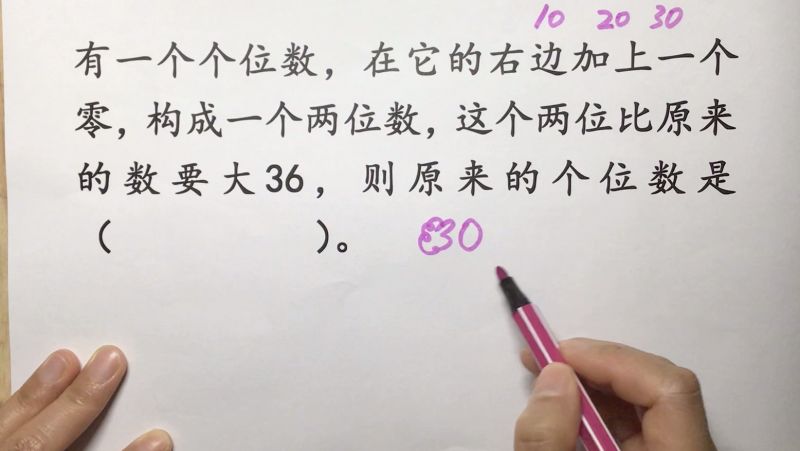 10 20 30
有一个个位数，在它的右边加上一个
零，构成一个两位数，这个两位比原来
的数要大36，则原来的个位数是
（ ）。 30